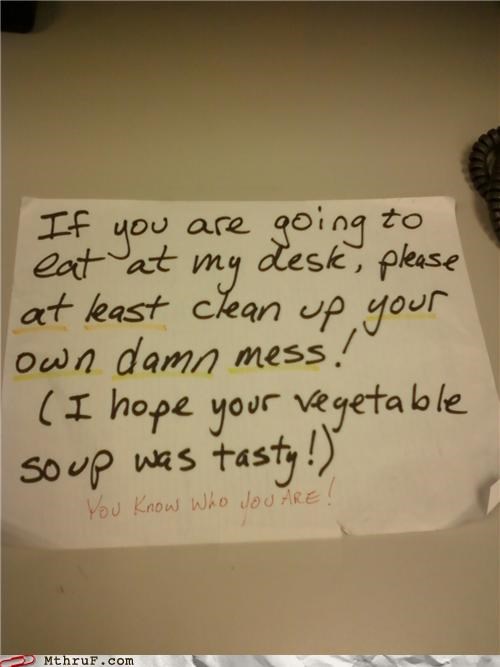 If you are going to
eat at my desk, please
at least clean up your
own damn mess!
(I hope your vegetable
soup was tasty!)
You Know Who You ARE!
MthruF.com